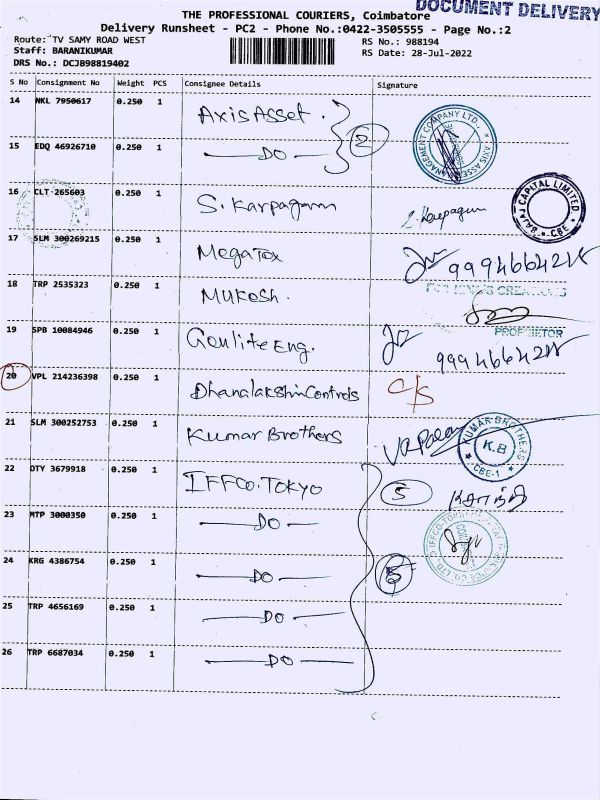 DOCUMENT DELIVERY
THE PROFESSIONAL COURIERS, Coimbatore
Delivery Runsheet - PC2 - Phone No.:0422-3505555 - Page No.:2
Route: TV SAMY ROAD WEST
RS No.: 988194
Staff: BARANIKUMAR
RS Date: 28-Jul-2022
DRS No.: DCJB98819402
S No Consignment No Weight PCS Consignee Details Signature
14 NKL 7950617 0.250 1 Axis Asset. 2
15 EDQ 46926710 0.250 1 DO
16 CLT 265603 0.250 1 S. Karpagam S. Karpagam
BAJAJ CAPITAL LIMITED CBE
17 SLM 300269215 0.250 1 MegaTex
18 TRP 2535323 0.250 1 Mukesh.
PROPRIETOR
19 SPB 10084946 0.250 1 Genlite Eng.
20 VPL 214236398 0.250 1 Dhanalakshmi Controls C/S
21 SLM 300252753 0.250 1 Kumar Brothers
KUMAR BROTHERS K.B CBE-1
22 OTY 3679918 0.250 1 IFFCO.TOKYO 5
23 MTP 3000350 0.250 1 DO
24 KRG 4386754 0.250 1 DO 5
25 TRP 4656169 0.250 1 DO
26 TRP 6687034 0.250 1 DO